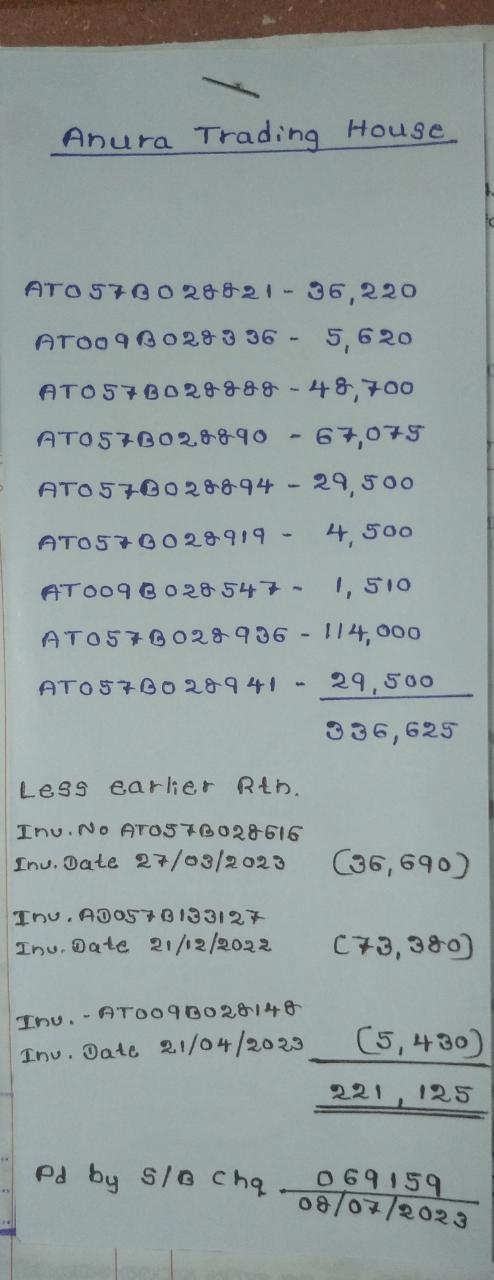 Anura Trading House
AT057B028821 - 36,220
AT009B028336 - 5,620
AT057B028888 - 48,700
AT057B028890 - 67,075
AT057B028894 - 29,500
AT057B028919 - 4,500
AT009B028547 - 1,510
AT057B028936 - 114,000
AT057B028941 - 29,500
336,625
Less earlier Rtn.
Inv. No AT057B028616
Inv. Date 27/03/2023 (36,690)
Inv. AD057B133127
Inv. Date 21/12/2022 (73,380)
Inv. - AT009B028148
Inv. Date 21/04/2023 (5,430)
221,125
Pd by S/B Chq 069159
08/07/2023